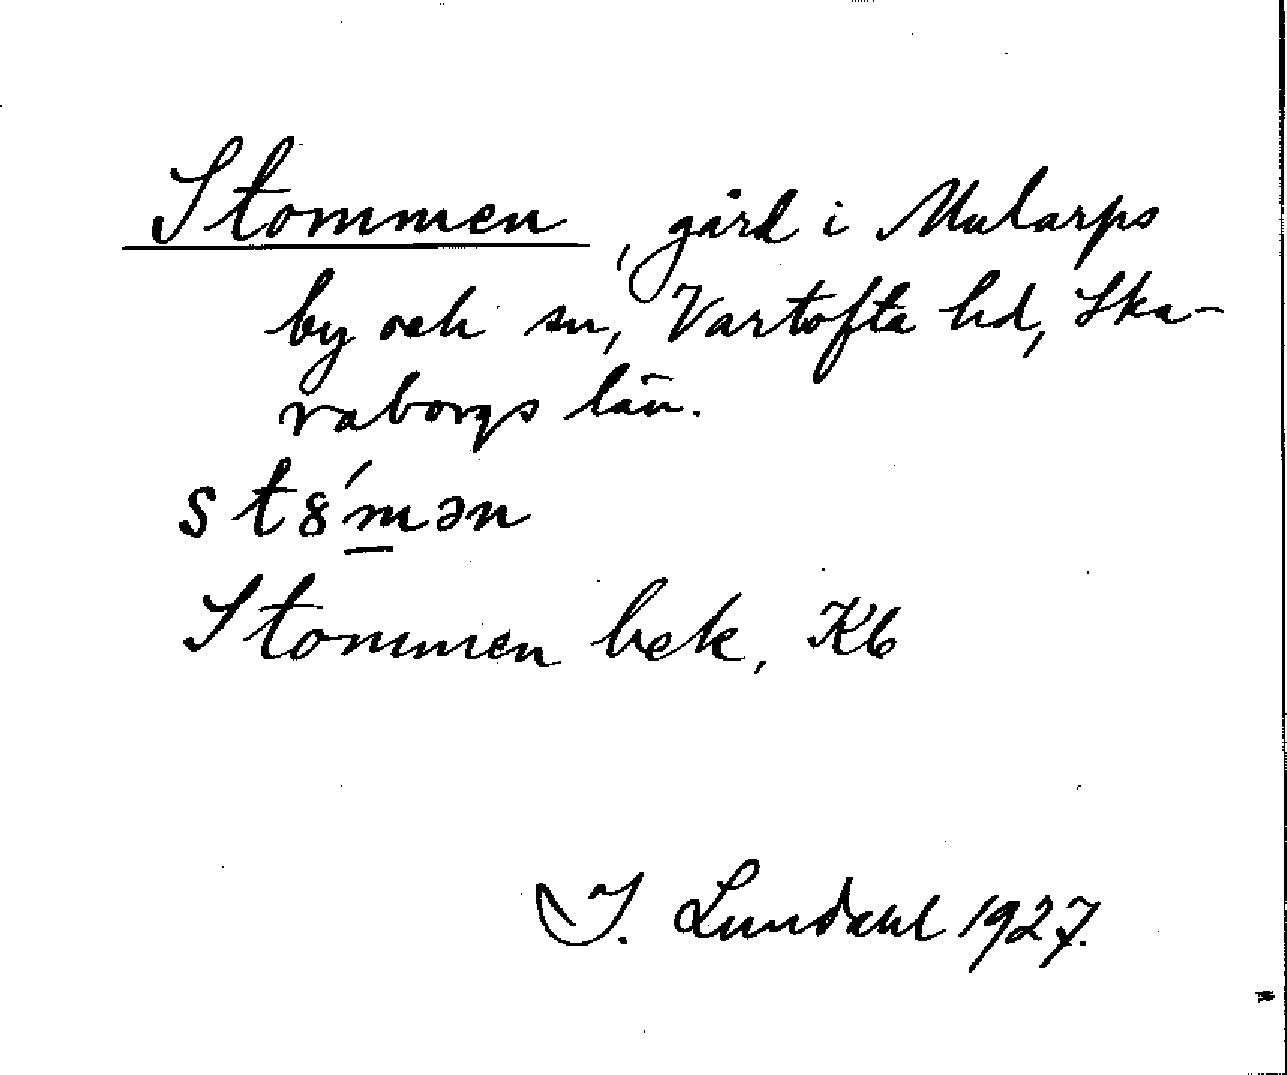 Stommen, gård i Mularps
by och sn, Vartofta hd, Ska-
raborgs län.
st8´mən
Stommen bek, Kb
I. Lundahl 1927.